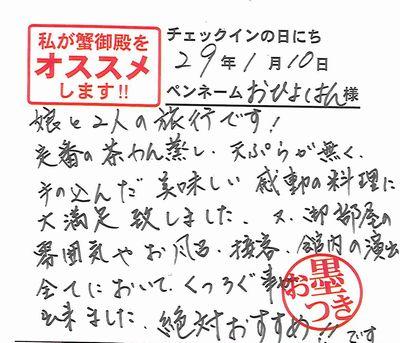 私が蟹御殿を
オススメ
します!!
チェックインの日にち
29年1月10日
ペンネームおひよはん様
娘と2人の旅行です!
定番の茶わん蒸し、天ぷらが無く、
手の込んだ美味しい感動の料理に
大満足致しました。又、御部屋の
雰囲気やお風呂・接客、館内の演出
全てにおいて、くつろぐ事が
出来ました。絶対おすすめ!!です
お墨つき